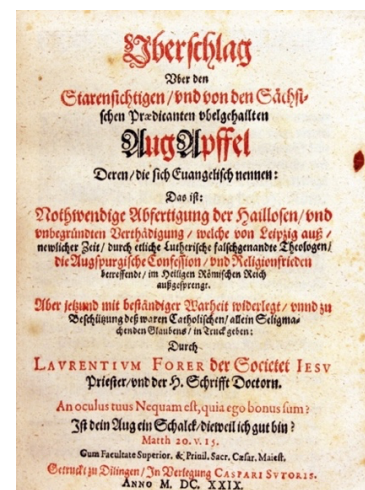 Vberschlag
Vber den
Starensichtigen/vnd von den Sächsi-
schen Prædicanten vbelgehailten
AugApffel
Deren/die sich Euangelisch nennen:
Das ist:
Nothwendige Abfertigung der Haillosen/vnd
vnbegründten Verthädigung/welche von Leipzig auß/
newlicher Zeit/durch etliche Lutherische falschgenandte Theologen/
die Augspurgische Confession/vnd Religionfrieden
betreffende/im Heiligen Römischen Reich
außgesprengt.
Aber jetzund mit beständiger Warheit widerlegt/vnnd zu
Beschützung deß waren Catholischen/allein Seligma-
chenden Glaubens/in Truck geben:
Durch
LAVRENTIVM FORER der Societet IESV
Priester/vnd der H. Schrifft Doctorn.
An oculus tuus Nequam est, quia ego bonus sum?
Ist dein Aug ein Schalck/dieweil ich gut bin?
Matth 20. v. 15.
Cum Facultate Superior. & Priuil. Sacr. Cæsar. Maiest.
Getruckt zu Dilingen/In Verlegung CASPARI SVTORIS.
ANNO M. DC. XXIX.